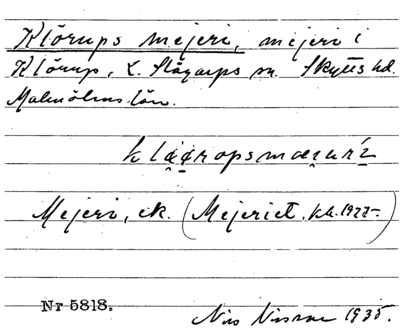 Klörups mejeri, mejeri i
Klörup, L. Slågarps sn. Skytts hd.
Malmöhus län.
Mejeri, ek. (Mejeriet. kh. 1927-)
Nr 5818.
Nils Nilsson 1935.